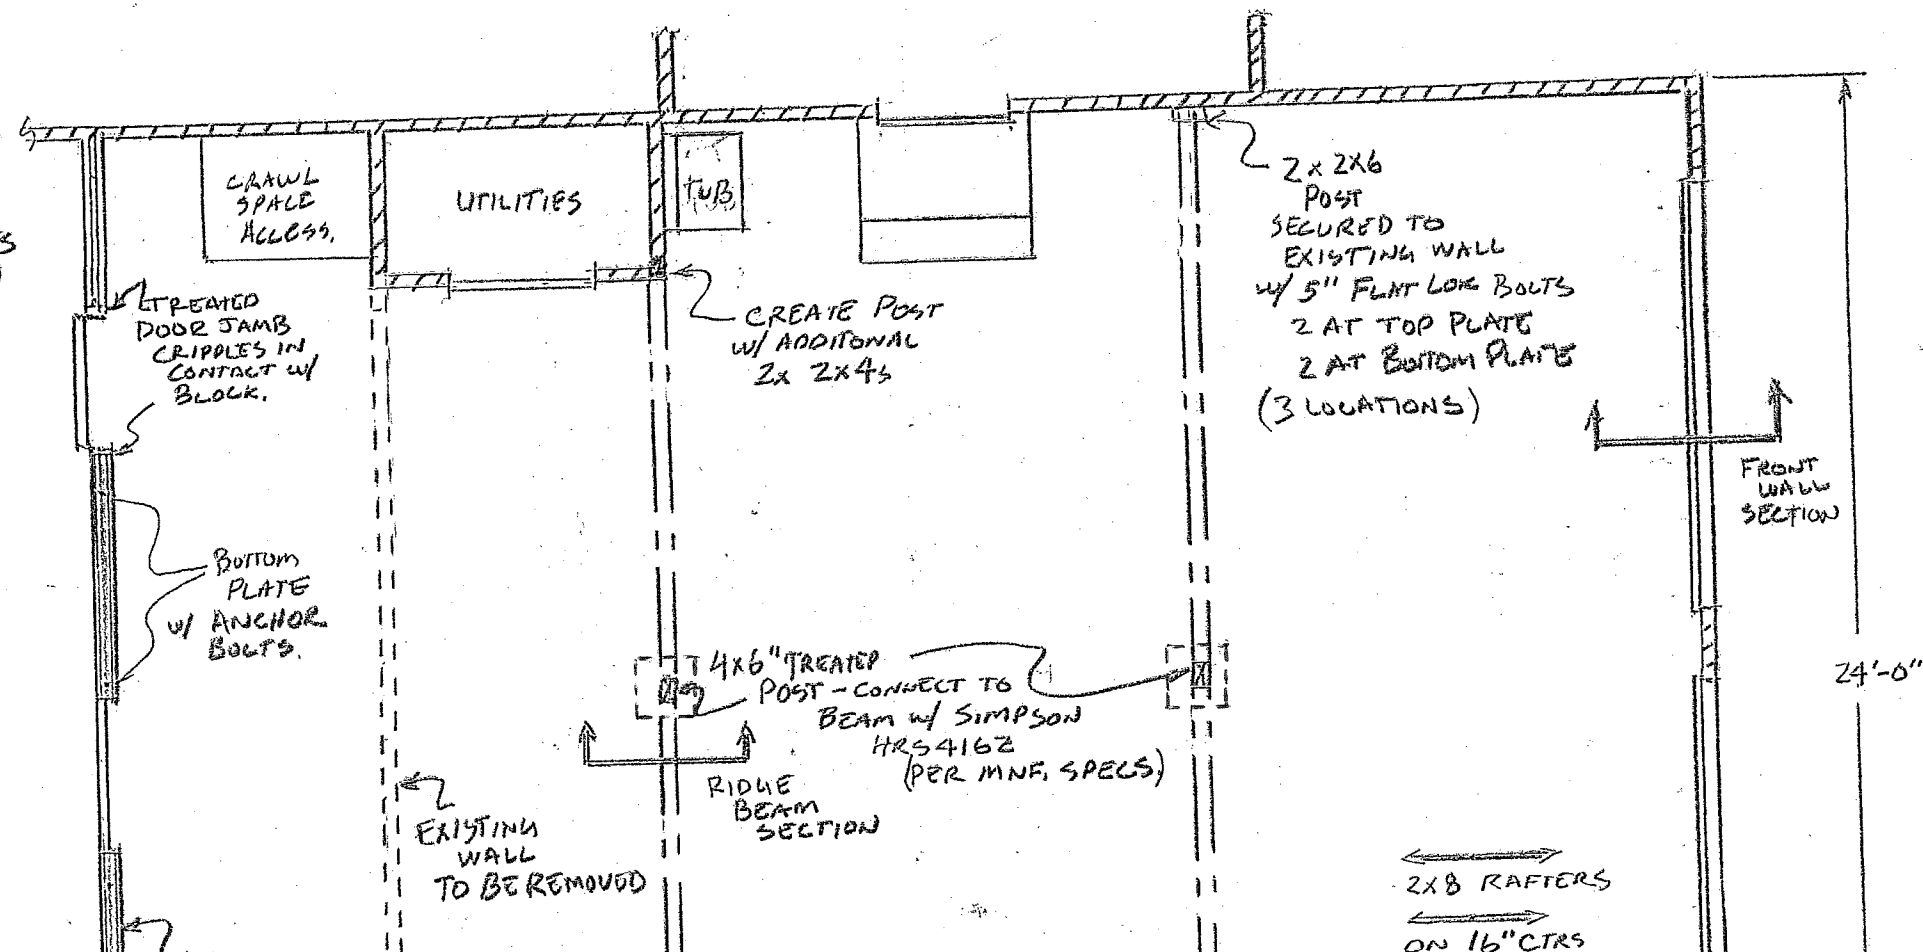 CRAWL
SPACE
ACCESS.
UTILITIES
TUB
2x 2x6
POST
SECURED TO
EXISTING WALL
w/ 5" FLAT LOK BOLTS
2 AT TOP PLATE
2 AT BOTTOM PLATE
(3 LOCATIONS)
S
TREATED
DOOR JAMB
CRIPPLES IN
CONTACT w/
BLOCK.
CREATE POST
w/ ADDITONAL
2x 2x4s
FRONT
WALL
SECTION
BOTTOM
PLATE
w/ ANCHOR
BOLTS.
4x6" TREATED
POST - CONNECT TO
BEAM w/ SIMPSON
HRS416Z
(PER MNF. SPECS.)
24'-0"
RIDGE
BEAM
SECTION
EXISTING
WALL
TO BE REMOVED
2x8 RAFTERS
ON 16" CTRS